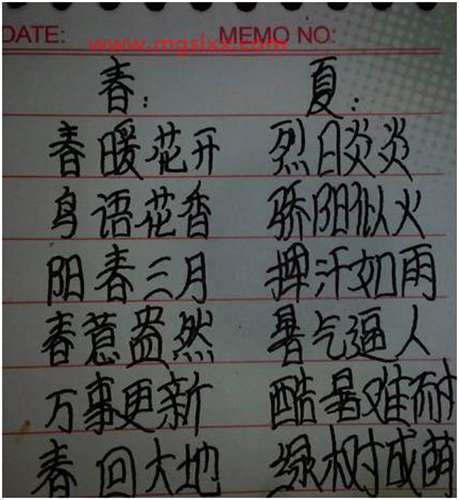 www.mgsixx.com
DATE: MEMO NO:
春： 夏：
春暖花开 烈日炎炎
鸟语花香 骄阳似火
阳春三月 挥汗如雨
春意盎然 暑气逼人
万事更新 酷暑难耐
春回大地 绿树成荫